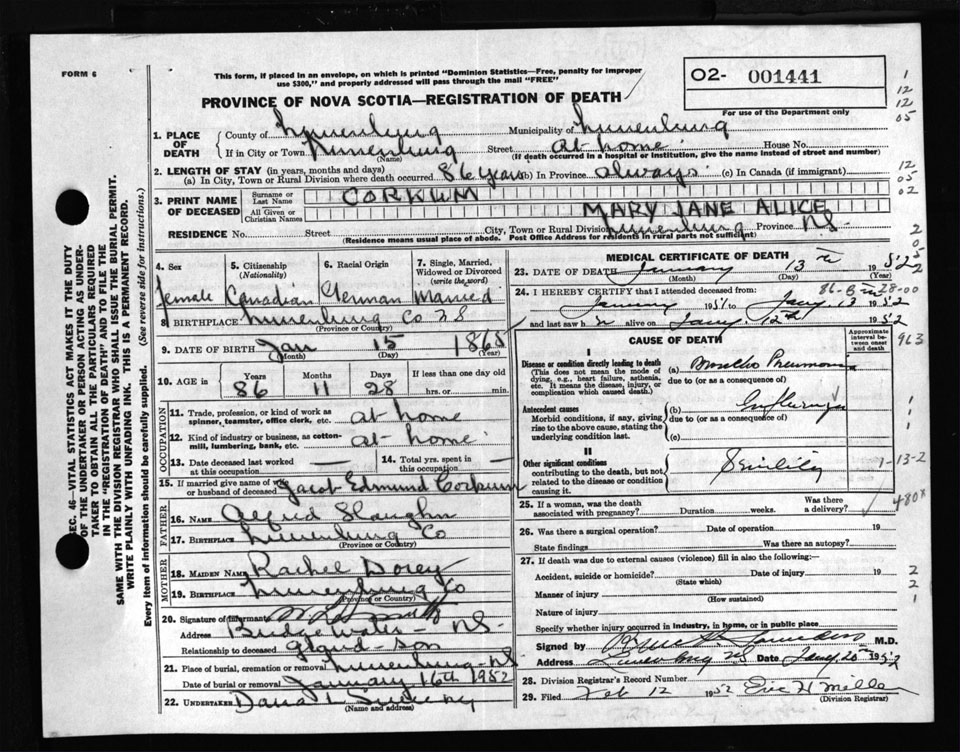 FORM 6
This form, if placed in an envelope, on which is printed "Dominion Statistics—Free, penalty for improper
use $300," and properly addressed will pass through the mail "FREE"
O2- 001441
For use of the Department only
PROVINCE OF NOVA SCOTIA—REGISTRATION OF DEATH
1. PLACE OF DEATH
County of Lunenburg Municipality of Lunenburg
If in City or Town Lunenburg Street at home House No.
(Name) (If death occurred in a hospital or institution, give the name instead of street and number)
2. LENGTH OF STAY (in years, months and days)
(a) In City, Town or Rural Division where death occurred 86 years (b) In Province always (c) In Canada (if immigrant)
3. PRINT NAME OF DECEASED
Surname or Last Name CORKUM
All Given or Christian Names MARY JANE ALICE
RESIDENCE No. Street City, Town or Rural Division Lunenburg Province NS
(Residence means usual place of abode. Post Office Address for residents in rural parts not sufficient)
4. Sex female
5. Citizenship (Nationality) Canadian
6. Racial Origin German
7. Single, Married, Widowed or Divorced (write the word) Married
8. BIRTHPLACE Lunenburg Co NS
(Province or Country)
9. DATE OF BIRTH Jan 15 1865
(Month) (Day) (Year)
10. AGE in Years Months Days If less than one day old
86 11 28 hrs. or min.
OCCUPATION
11. Trade, profession, or kind of work as spinner, teamster, office clerk, etc. at home
12. Kind of industry or business, as cotton-mill, lumbering, bank, etc. at home
13. Date deceased last worked at this occupation —
14. Total yrs. spent in this occupation —
15. If married give name of wife or husband of deceased Jacob Edmund Corkum
FATHER
16. Name Alfred
17. Birthplace Lunenburg Co
(Province or Country)
MOTHER
18. MAIDEN NAME Rachel Dorey
19. BIRTHPLACE Lunenburg Co
(Province or Country)
20. Signature of informant
Address Bridgewater - NS-
Relationship to deceased grand-son
21. Place of burial, cremation or removal Lunenburg-NS
Date of burial or removal January 16th 1952
22. UNDERTAKER Dana L Sweeny
(Name and address)
MEDICAL CERTIFICATE OF DEATH
23. DATE OF DEATH January 13 1952
(Month) (Day) (Year)
24. I HEREBY CERTIFY that I attended deceased from:
January 1951 to Jany. 13 1952
and last saw h alive on Jany. 12th 1952
CAUSE OF DEATH
Approximate interval between onset and death
I
Disease or condition directly leading to death
(This does not mean the mode of dying, e.g., heart failure, asthenia, etc. It means the disease, injury, or complication which caused death.)
(a) Pneumonia
due to (or as a consequence of)
Antecedent causes
Morbid conditions, if any, giving rise to the above cause, stating the underlying condition last.
(b) Influenza
due to (or as a consequence of)
(c)
II
Other significant conditions
contributing to the death, but not related to the disease or condition causing it.
Senility
25. If a woman, was the death associated with pregnancy? Duration weeks. Was there a delivery?
26. Was there a surgical operation? Date of operation 19
State findings Was there an autopsy?
27. If death was due to external causes (violence) fill in also the following:—
Accident, suicide or homicide? Date of injury 19
(State which)
Manner of injury
(How sustained)
Nature of injury
Specify whether injury occurred in industry, in home, or in public place
Signed by Saunders M.D.
Address Lunenburg NS Date Jany 20 1952
28. Division Registrar's Record Number
29. Filed Feb 12 1952 Eric H Mills
(Division Registrar)
SEC. 46—VITAL STATISTICS ACT MAKES IT THE DUTY
OF THE UNDERTAKER OR PERSON ACTING AS UNDERTAKER TO OBTAIN ALL THE PARTICULARS REQUIRED
IN THE "REGISTRATION OF DEATH" AND TO FILE THE
SAME WITH THE DIVISION REGISTRAR WHO SHALL ISSUE THE BURIAL PERMIT.
WRITE PLAINLY WITH UNFADING INK. THIS IS A PERMANENT RECORD.
Every item of information should be carefully supplied. (See reverse side for instructions.)
1
12
12
05
12
05
02
2
0
963
1
1
1-13-2
480X
2
2
1